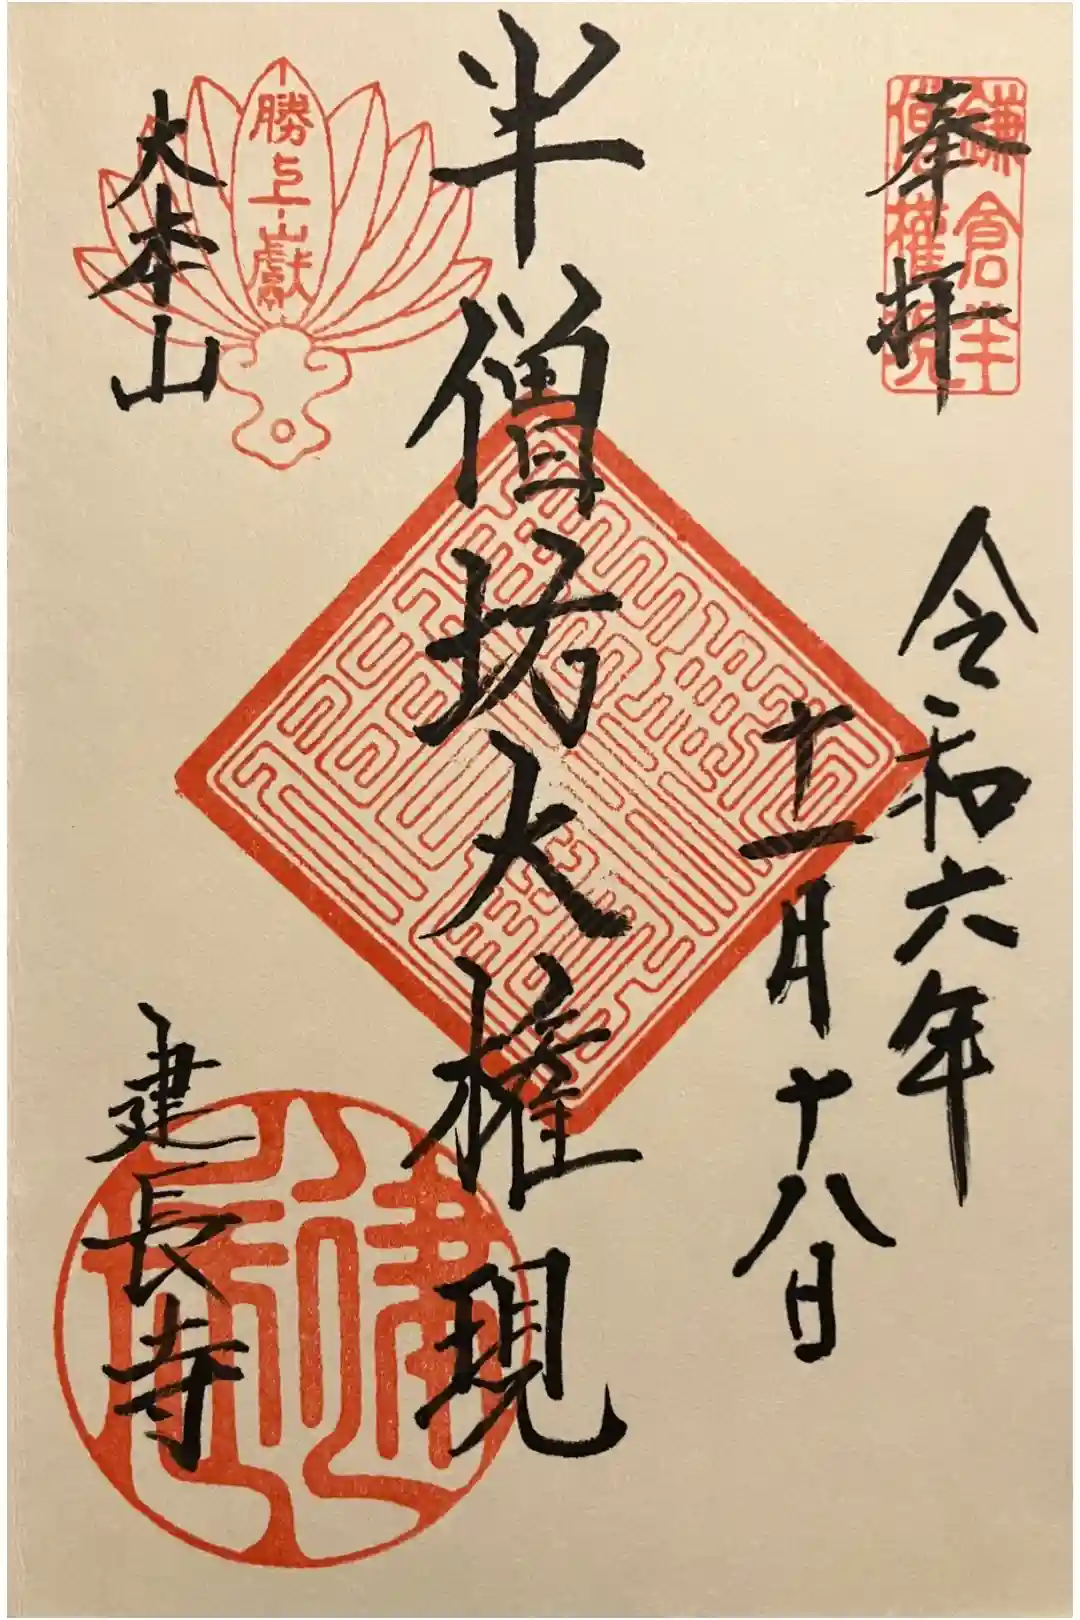 奉拝
鎌倉半
僧権現
令和六年
十一月十八日
半僧坊大権現
勝上山献
大本山
建長寺